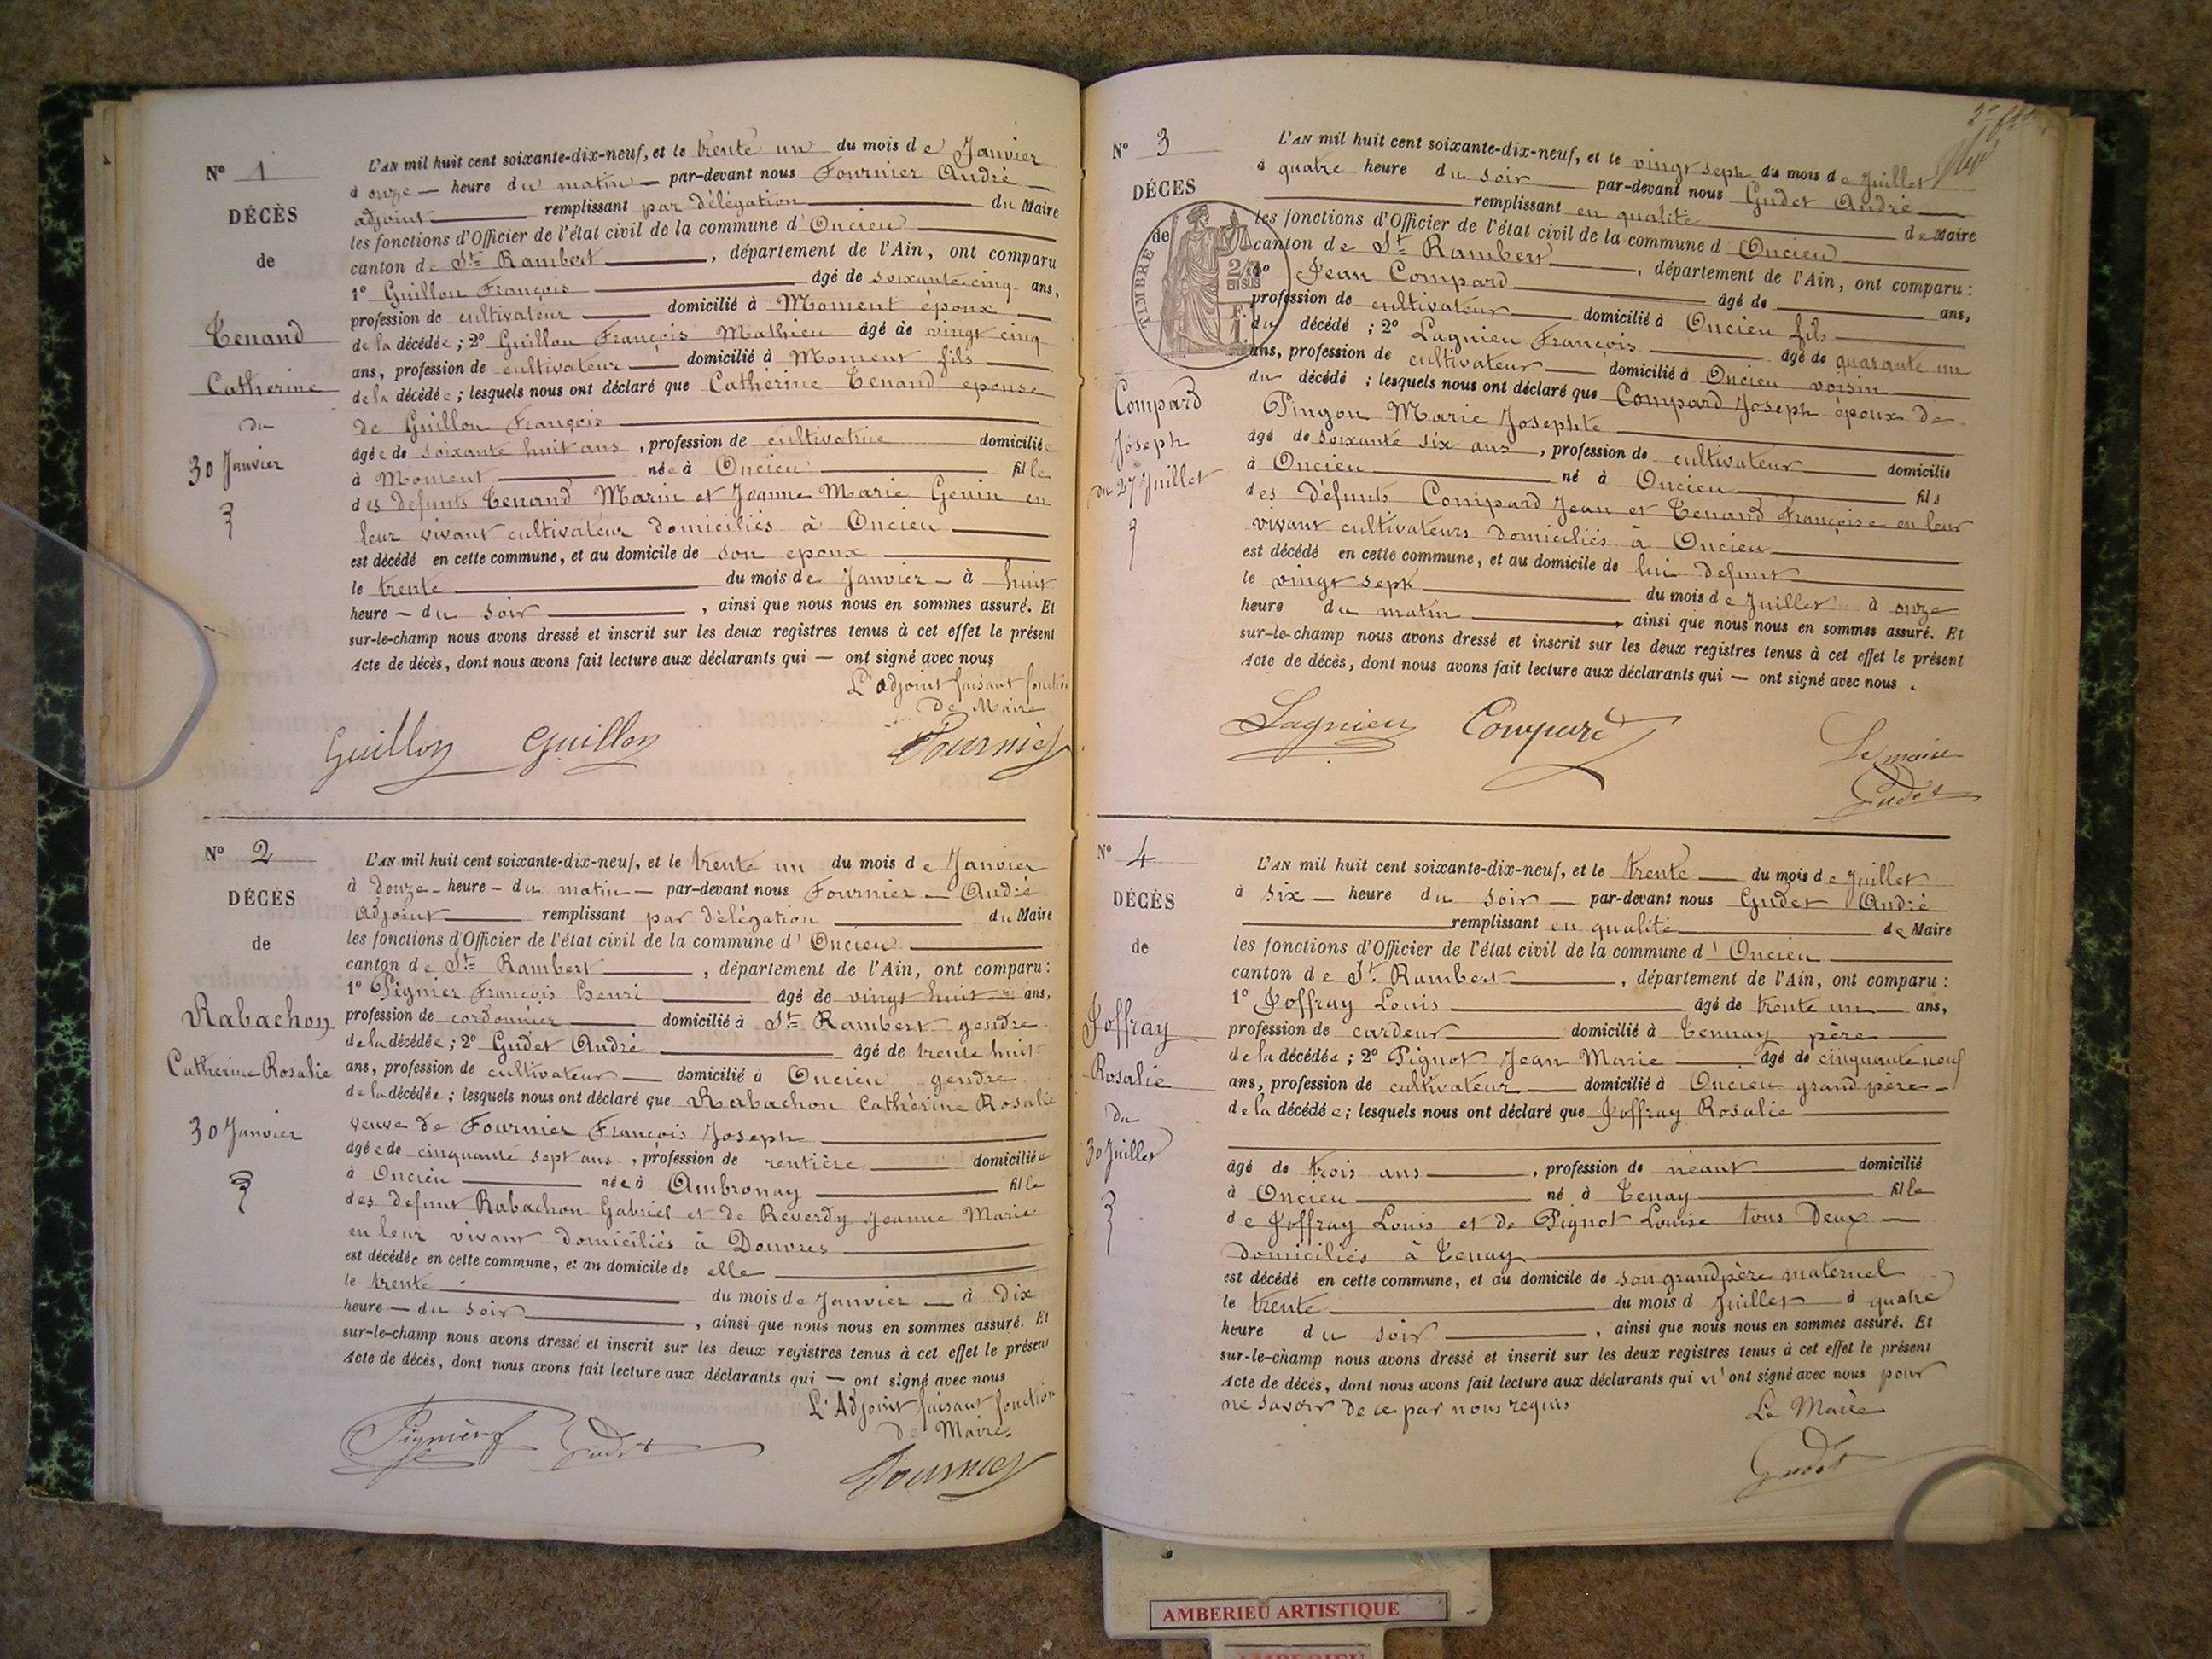 N° 1
DÉCÈS
de
Tenand
Catherine
du
30 Janvier
L'AN mil huit cent soixante-dix-neuf, et le trente un du mois de Janvier
à onze — heure du matin — par-devant nous Fournier André
adjoint remplissant par délégation du Maire
les fonctions d'Officier de l'état civil de la commune d'Oncieu
canton de St Rambert, département de l'Ain, ont comparu
1° Guillon François âgé de soixante-cinq ans,
profession de cultivateur domicilié à Moment époux
de la décédée ; 2° Guillon François Mathieu âgé de vingt cinq
ans, profession de cultivateur domicilié à Moment fils
de la décédée ; lesquels nous ont déclaré que Cathèrine Tenand epouse
de Guillon François
âgée de soixante huit ans, profession de cultivatrice domiciliée
à Moment née à Oncieu fille
des defunts Tenand Marin et Jeanne Marie Genin en
leur vivant cultivateur domiciliés à Oncieu
est décédé en cette commune, et au domicile de son epoux
le trente du mois de Janvier — à huit
heure — du soir, ainsi que nous nous en sommes assuré. Et
sur-le-champ nous avons dressé et inscrit sur les deux registres tenus à cet effet le présent
Acte de décès, dont nous avons fait lecture aux déclarants qui — ont signé avec nous
L'adjoint faisant fonction
De Maire
Guillon Guillon Fournier
N° 2
DÉCÈS
de
Rabachon
Catherine Rosalie
30 Janvier
L'AN mil huit cent soixante-dix-neuf, et le trente un du mois de Janvier
à douze — heure — du matin — par-devant nous Fournier — André
Adjoint remplissant par délégation du Maire
les fonctions d'Officier de l'état civil de la commune d'Oncieu
canton de St Rambert, département de l'Ain, ont comparu :
1° Pignier François Henri âgé de vingt huit ans,
profession de cordonnier domicilié à St Rambert gendre
de la décédée ; 2° Gudet André âgé de trente huit
ans, profession de cultivateur domicilié à Oncieu gendre
de la décédée ; lesquels nous ont déclaré que Rabachon Cathèrine Rosalie
veuve de Fournier François Joseph
âgée de cinquante sept ans, profession de rentière domiciliée
à Oncieu née à Ambronay fille
des defunt Rabachon Gabriel et de Reverdy Jeanne Marie
en leur vivant domiciliés à Douvres
est décédée en cette commune, et au domicile de elle
le trente du mois de Janvier — à dix
heure — du soir, ainsi que nous nous en sommes assuré. Et
sur-le-champ nous avons dressé et inscrit sur les deux registres tenus à cet effet le présent
Acte de décès, dont nous avons fait lecture aux déclarants qui — ont signé avec nous
L'Adjoint faisant fonction
de Maire
Gudet Fournier
N° 3
DÉCES
de
TIMBRE
2/10
EN SUS
Compard
Joseph
du 27 Juillet
L'AN mil huit cent soixante-dix-neuf, et le vingt sept du mois de Juillet
à quatre heure du soir par-devant nous Gudet André
remplissant en qualité de Maire
les fonctions d'Officier de l'état civil de la commune d Oncieu
canton de St Rambert, département de l'Ain, ont comparu :
1° Jean Compard âgé de ans,
profession de cultivateur domicilié à Oncieu fils
du décédé ; 2° Lagnieu François âgé de quarante un
ans, profession de cultivateur domicilié à Oncieu voisin
du décédé ; lesquels nous ont déclaré que Compard Joseph époux de
Pingon Marie Josephte
âgé de soixante six ans, profession de cultivateur domicilié
à Oncieu né à Oncieu fils
des défunts Compard Jean et Tenand Françoise en leur
vivant cultivateurs domiciliés à Oncieu
est décédé en cette commune, et au domicile de lui defunt
le vingt sept du mois de Juillet à onze
heure du matin, ainsi que nous nous en sommes assuré. Et
sur-le-champ nous avons dressé et inscrit sur les deux registres tenus à cet effet le présent
Acte de décès, dont nous avons fait lecture aux déclarants qui — ont signé avec nous.
Lagnieu Compard
Le maire
Gudet
N° 4
DÉCÈS
de
Joffray
Rosalie
du
30 Juillet
L'AN mil huit cent soixante-dix-neuf, et le trente du mois de Juillet
à six — heure du soir — par-devant nous Gudet André
remplissant en qualité de Maire
les fonctions d'Officier de l'état civil de la commune d'Oncieu
canton de St Rambert, département de l'Ain, ont comparu :
1° Joffray Louis âgé de trente un ans,
profession de cardeur domicilié à Tennay père
de la décédée ; 2° Pignot Jean Marie âgé de cinquante neuf
ans, profession de cultivateur domicilié à Oncieu grand père
de la décédée ; lesquels nous ont déclaré que Joffray Rosalie
âgé de trois ans, profession de néant domicilié
à Oncieu né à Tenay fille
de Joffray Louis et de Pignot Louise tous Deux
domiciliés à Tenay
est décédé en cette commune, et au domicile de son grand père maternel
le trente du mois d Juillet à quatre
heure du soir, ainsi que nous nous en sommes assuré. Et
sur-le-champ nous avons dressé et inscrit sur les deux registres tenus à cet effet le présent
Acte de décès, dont nous avons fait lecture aux déclarants qui n'ont signé avec nous pour
ne savoir de ce par nous requis
Le Maire
Gudet
AMBERIEU ARTISTIQUE
AMBERIEU